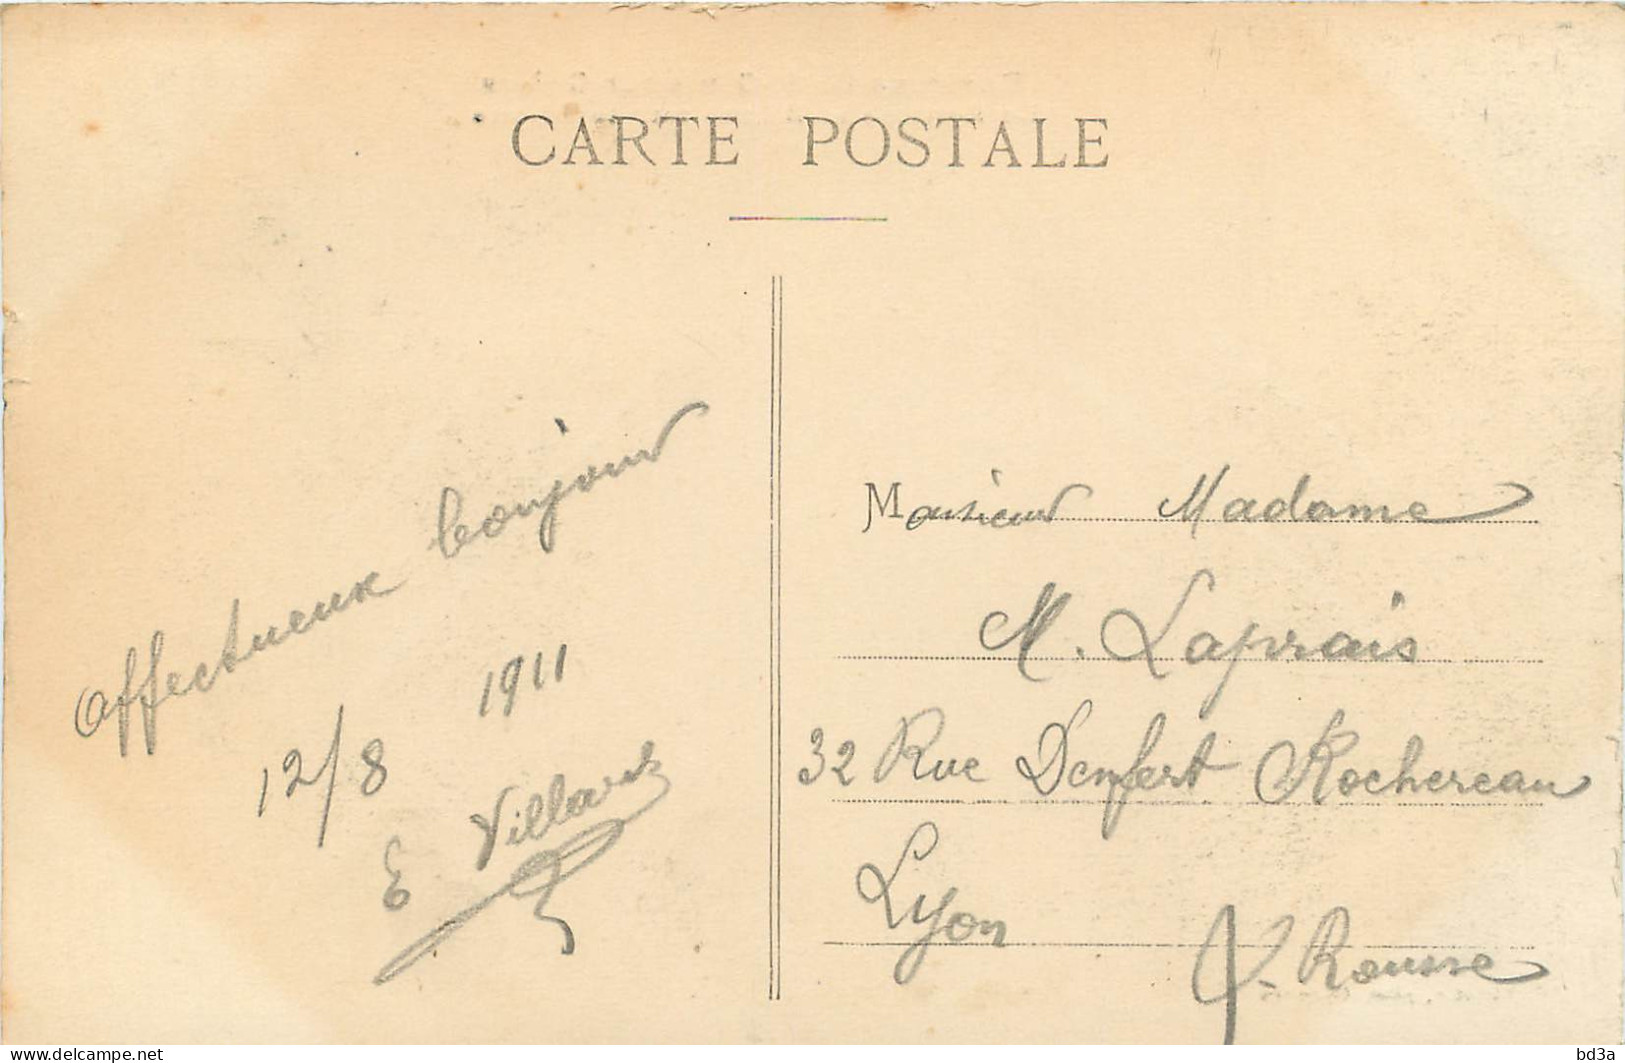 CARTE POSTALE
Affectueux bonjour
12/8 1911
E Villard
Monsieur Madame
M. Laprais
32 Rue Denfert Rochereau
Lyon X. Rousse
delcampe.net
bd3a